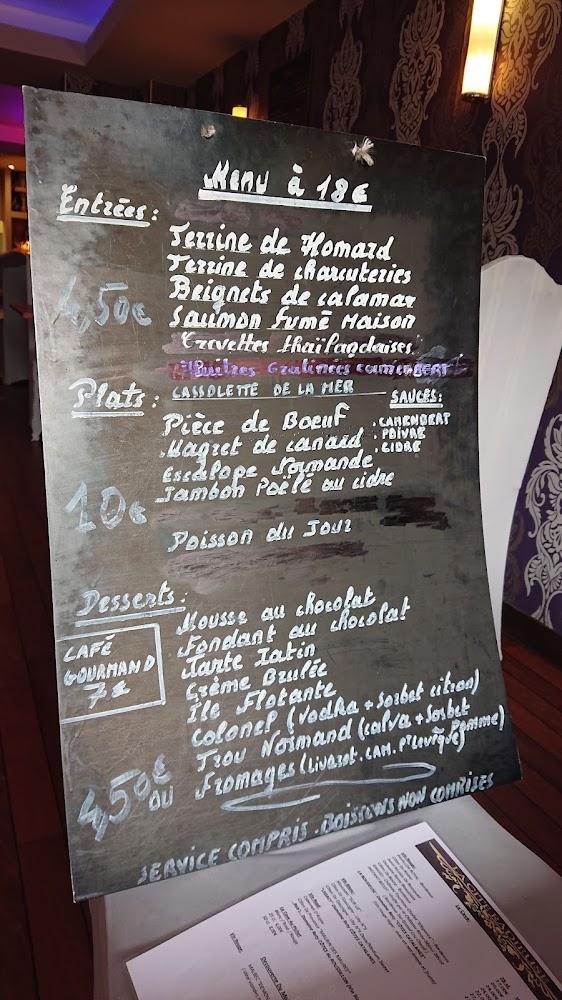 Menu à 18€
Entrées:
Terrine de Homard
Terrine de charcuteries
Beignets de calamar
4,50€
Saumon fumé Maison
Crevettes thaïlandaises
Huîtres Gratinées camemBERT
CASSOLETTE DE LA MER
Plats:
SAUCES:
Pièce de Boeuf
. CAMEMBERT
Magret de canard
. POIVRE
. CIDRE
Escalope Normande
Jambon Poëlé au cidre
10€
Poisson du Jour
Desserts:
Mousse au chocolat
Fondant au chocolat
CAFÉ
GOURMAND
7€
Tarte Tatin
Crème Brulée
Ile Flotante
Colonel (Vodka + Sorbet citron)
Trou Normand (calva + Sorbet
Pomme)
4,50€
OU
Fromages (Livarot. CAM. Pt Levêque)
SERVICE COMPRIS. BOISSONS NON COMPRISES